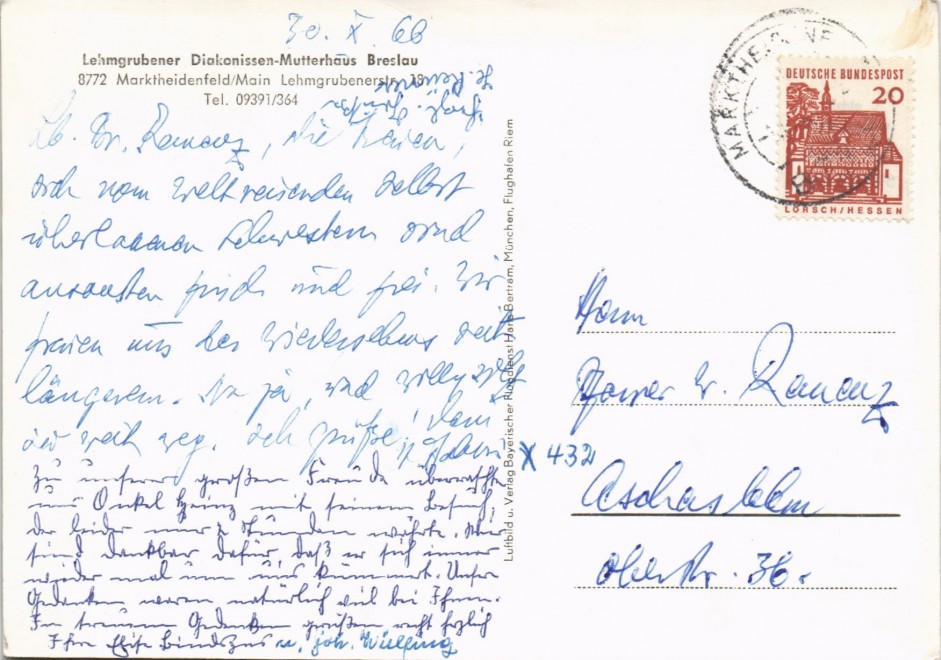 30. X. 66
Lehmgrubener Diakonissen-Mutterhaus Breslau
8772 Marktheidenfeld/Main Lehmgrubenerstr. 18
Tel. 09391/364
Lb. Br. , die ,
sich vom weltreisenden selbst
überlassenen Schwestern sind
ansonsten frisch und frei. Wir
freuen uns des Wiedersehens seit
längerem. Na ja, und Willy
so weit weg. Ich grüße! Dein
Zu unserer großen Freude überraschte
uns Onkel Heinz mit seinem Besuch,
der leider nur 2 Stunden währte. Wir
sind dankbar dafür, daß er sich immer
wieder mal um uns kümmert. Unsere
Gedanken waren natürlich viel bei Ihnen.
In treuem Gedenken grüßen recht herzlich
Ihre Elise u. Joh. Wülfing
Luftbild u. Verlag Bayerischer Flugdienst Hans Bertram, München, Flughafen Riem
MARKTHEIDENFE
DEUTSCHE BUNDESPOST
20
LORSCH/HESSEN
Herrn
X 432
Aschersleben
Oberstr. 36.